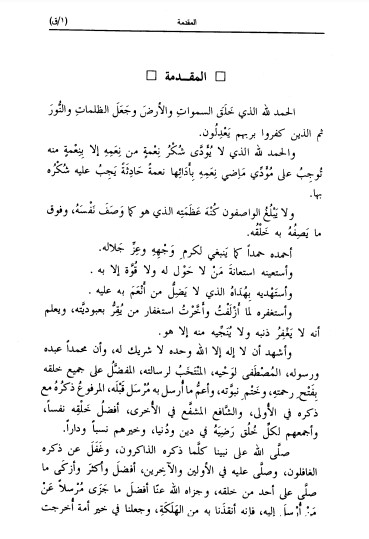 المقدمة
(١/ق)
المقـدمة
الحمد لله الذي خَلَقَ السموات والأرضَ وجَعَلَ الظلمات والنُّورَ
ثم الذين كفروا بربهم يَعْدِلُون.
والحمد لله الذي لا يُؤدَّى شُكْرُ نِعْمةٍ من نِعَمِهِ إلا بِنِعْمةٍ منه
تُوجِبُ على مُؤدِّي مَاضِي نِعَمِهِ بأدَائِها نعمةً حَادِثةً يَجِبُ عليه شُكْرُه
بها.
ولا يَبْلُغُ الواصفون كُنْهَ عَظَمتِه الذي هو كما وَصَفَ نَفْسَهُ، وفوق
ما يَصِفُهُ به خَلْقُه.
أحمده حمداً كما ينبغي لكرمِ وَجْهِهِ وعِزِّ جَلالِه.
وأستعينه استعانةَ مَنْ لا حَوْل له ولا قُوَّة إلا به .
وأستَهْدِيه بِهُدَاهُ الذي لا يَضِلُّ من أنْعَمَ به عليه .
وأستغفره لما أزْلَفْتُ وأخَّرْتُ استغفار من يُقِرُّ بعبوديَّته، ويعلم
أنه لا يَغْفِرُ ذنبه ولا يُنَجِّيه منه إلا هو.
وأشهد أن لا إله إلا الله وحده لا شريك له، وأن محمداً عبده
ورسوله، المُصْطَفَى لِوَحْيِه، المُنْتَخَبُ لرسالته، المفضَّلُ على جميع خلقه
بِفَتْحِ رحمتِهِ، وخَتْمِ نبوَّته، وأعمُّ ما أُرسل به مُرْسَل قَبْلَه، المرفوعُ ذكرُهُ مع
ذكره في الأولى، والشافع المشفَّع في الأخرى، أفضلُ خَلْقِه نفساً،
وأجمعهم لكلِّ خُلُق رَضِيَهُ في دين ودُنيا، وخيرهم نسباً وداراً.
صلَّى الله على نبينا كلَّما ذكره الذاكرون، وغَفَلَ عن ذكره
الغافلون، وصلَّى عليه في الأولين والآخِرين، أفضلَ وأكثرَ وأزكى ما
صلَّى على أحد من خلقه، وجزاه الله عنّا أفضلَ ما جَزَى مُرْسَلاً عَنْ
مَنْ أُرْسِلَ إليه، فإنه أنقذَنا به من الهَلَكَةِ، وجعلنا في خير أمة أخرجت